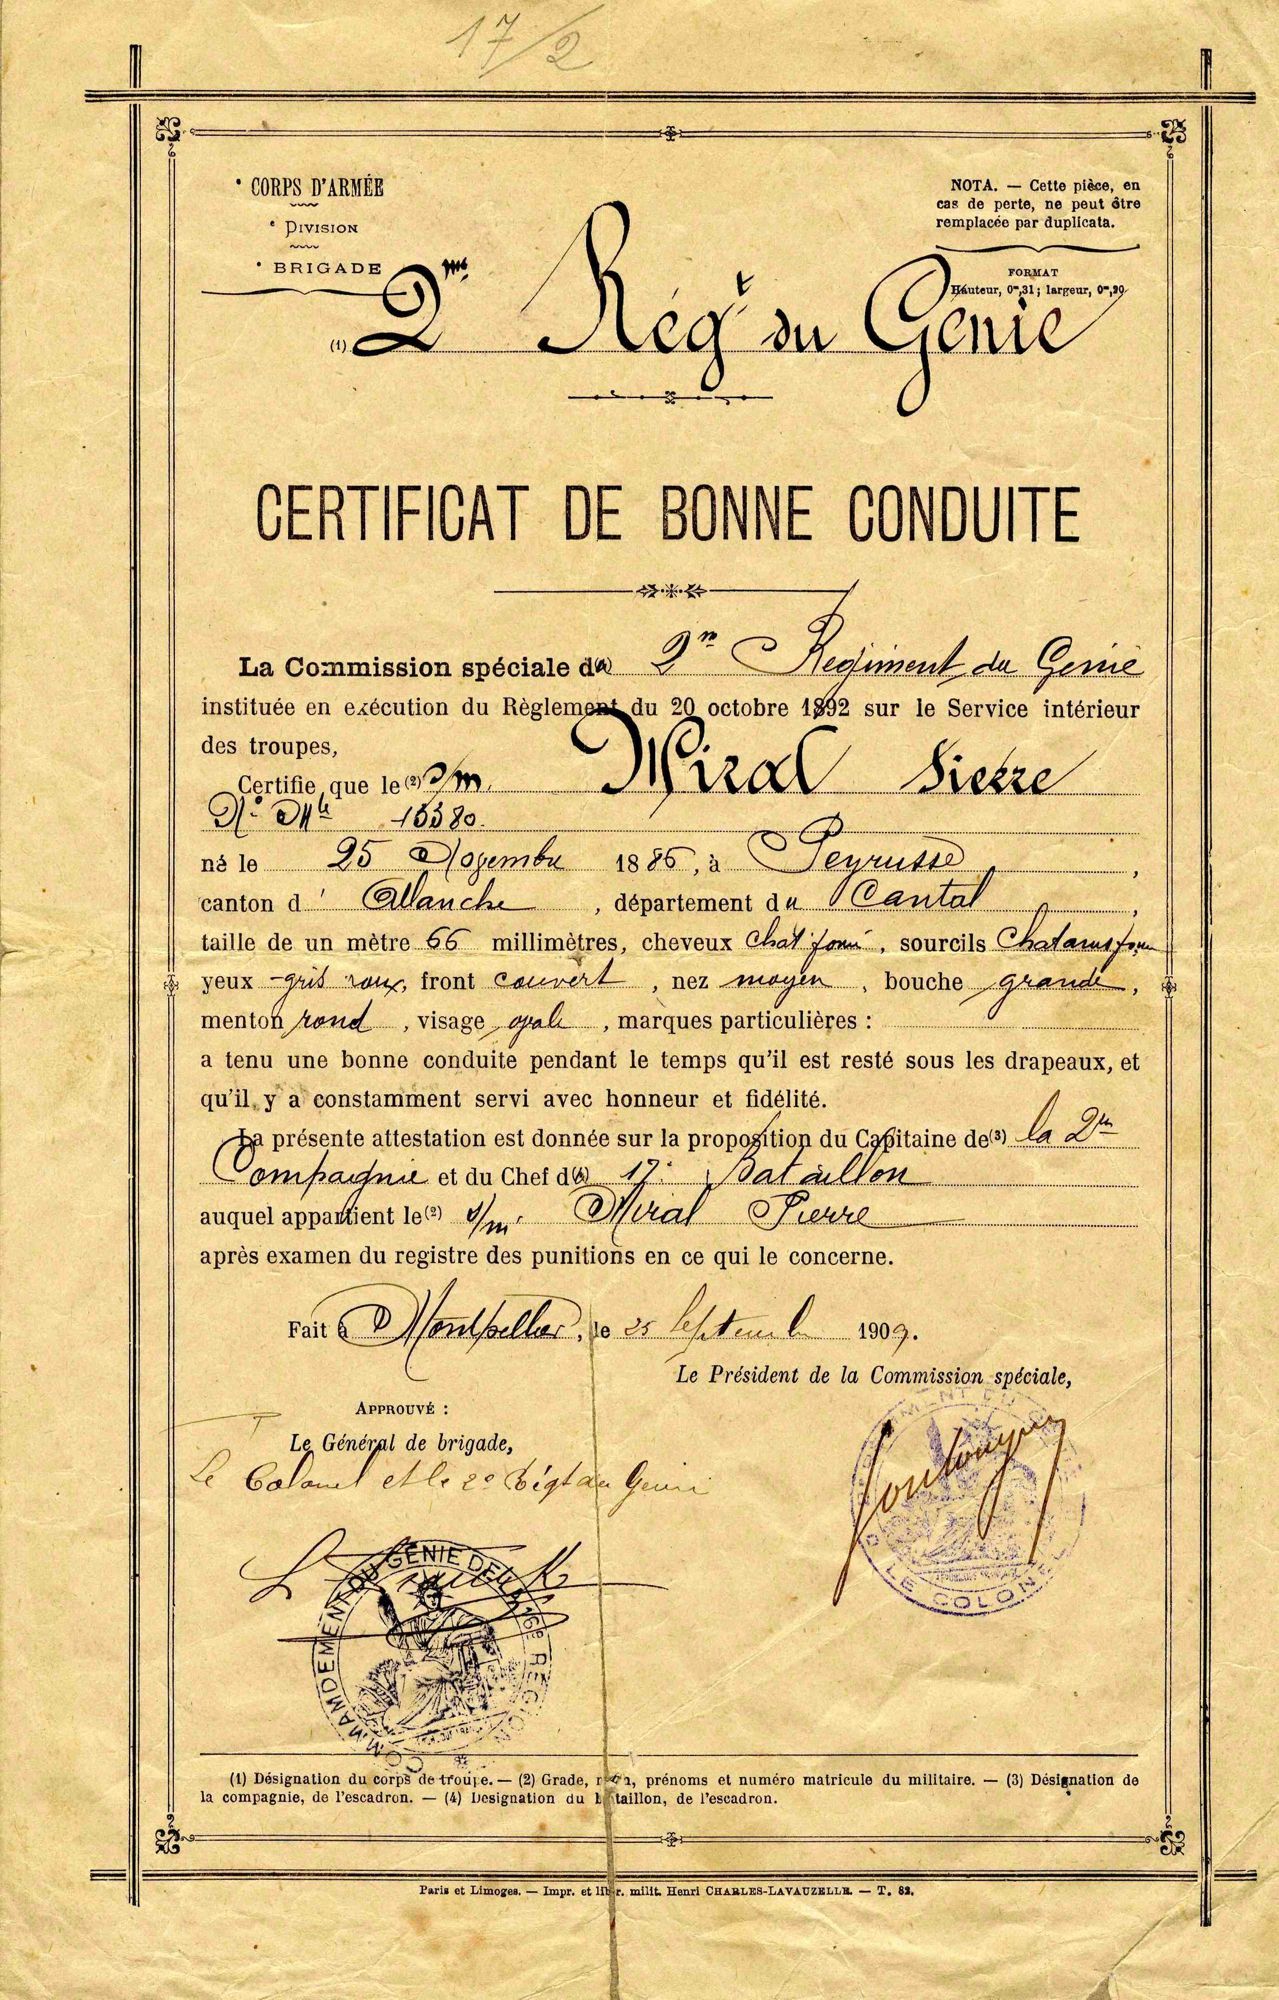 17/2
° CORPS D'ARMÉE
° DIVISION
° BRIGADE
NOTA. — Cette pièce, en
cas de perte, ne peut être
remplacée par duplicata.
FORMAT
Hauteur, 0m,31; largeur, 0m,20
(1) 2me Régt du Génie
CERTIFICAT DE BONNE CONDUITE
La Commission spéciale du 2e Regiment du Genie
instituée en exécution du Règlement du 20 octobre 1892 sur le Service intérieur
des troupes,
Certifie que le (2) s/m. Miral Pierre
No Mle 15380.
né le 25 Novembre 1886, à Peyrusse,
canton d' Allanche, département du Cantal,
taille de un mètre 66 millimètres, cheveux chat foncé, sourcils Chatains foncé
yeux gris roux, front couvert, nez moyen, bouche grande,
menton rond, visage ovale, marques particulières :
a tenu une bonne conduite pendant le temps qu'il est resté sous les drapeaux, et
qu'il y a constamment servi avec honneur et fidélité.
La présente attestation est donnée sur la proposition du Capitaine de (3) la 2me
Compagnie et du Chef d(4) 17e Bataillon
auquel appartient le (2) s/m. Miral Pierre
après examen du registre des punitions en ce qui le concerne.
Fait à Montpellier, le 25 Septembre 1909.
Le Président de la Commission spéciale,
APPROUVÉ :
Le Général de brigade,
Le Colonel et le 2e Régt du Génie
COMMANDEMENT DU GÉNIE DE LA 16e REGION
LE COLONEL
(1) Désignation du corps de troupe. — (2) Grade, nom, prénoms et numéro matricule du militaire. — (3) Désignation de
la compagnie, de l'escadron. — (4) Designation du bataillon, de l'escadron.
Paris et Limoges. — Impr. et libr. milit. Henri CHARLES-LAVAUZELLE. — T. 82.